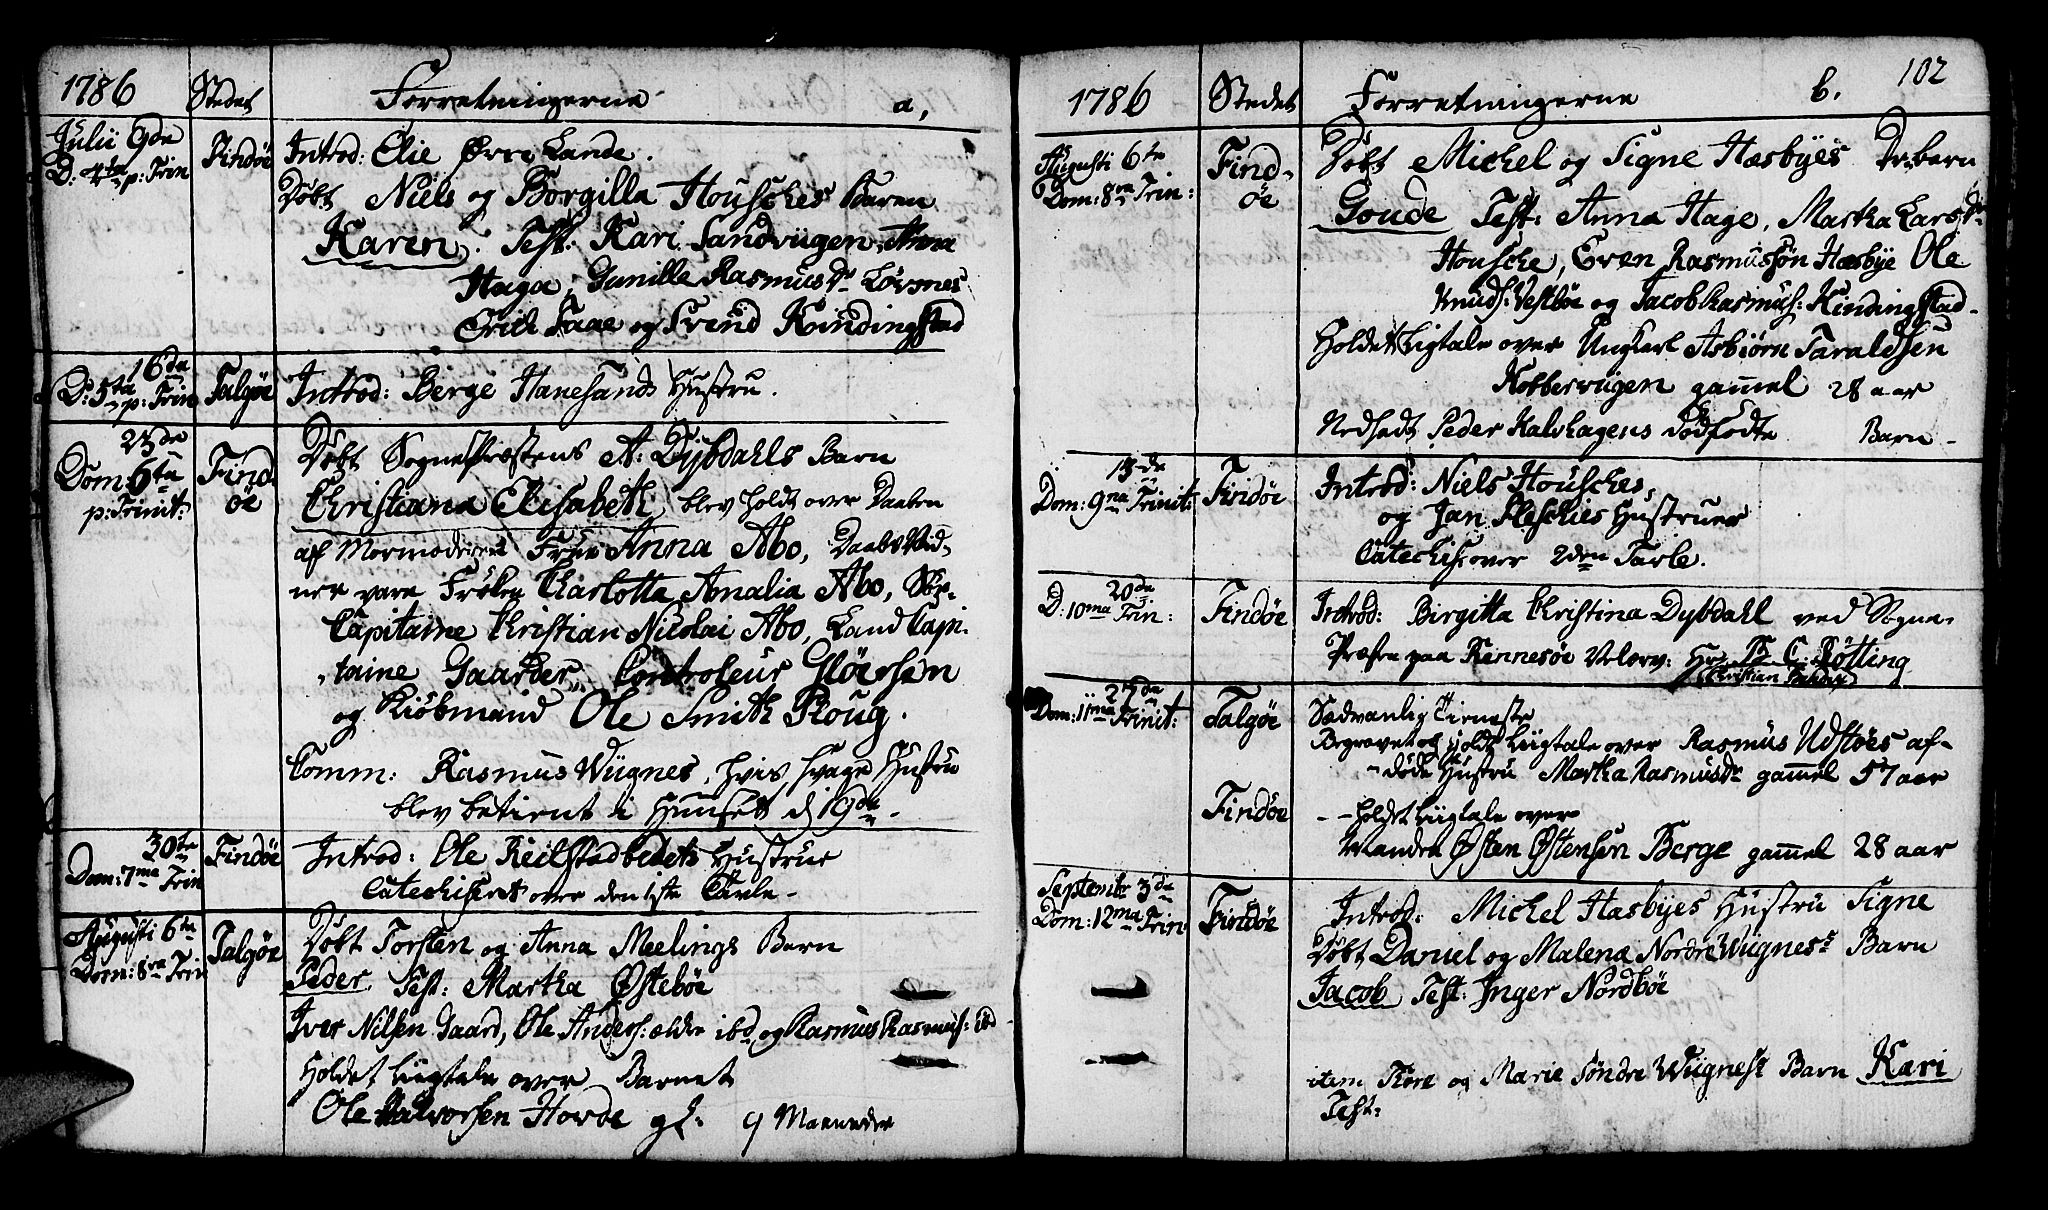 1786 Stedet Forretningerne a,
Julii 9de
D: 4ta p: Trin
Findöe
Introd: Elie Øvre Lande.
Döbt Niels og Borgilla Housches Baren
Karen. Test: Kari Sandvügen, Anna
Haga, Gunille Rasmusdr Lövsnes
Erich Faae og Svend Kindingstad
16de
D: 5ta p: Trin
Talgöe
Introd: Berge Hanesands Hustru.
23de
Dom: 6ta
p: Trinit:
Find
öe
Döbt SognePræstens A: Dybdahls Barn
Christiana Elisabeth blev holdt over Daaben
af Mormoderen Frue Anna Abo, Daabs Vid-
ner vare Fröken Charlotta Amalia Abo, Söe-
Capitaine Christian Nicolai Abo, Land Capi-
taine Gaarder, Controleur Glöersen
og Kiöbmand Ole Smith Ploug.
Comm: Rasmus Wiignes, hvis svage Hustru
blev betient i Huuset d 19de
30te
Dom: 7ma Trin
Findöe
Introd: Ole Reilstadbedets Hustrue
Catechiseret over den 1ste Tavle
Augusti 6te
Dom: 8va Trin
Talgöe
Döbt Torsten og Anna Meelings Barn
Peder. Test: Martha Østeböe
Iver Nilsen Gaard, Ole Anders: ældre ibd og Rasmus Rasmus: ibd
Holdet Liigtale over Barnet
Ole Halvorsen Hovde gl: 9 Maaneder
1786 Stedet Forretningerne b. 102
Augusti 6te
Dom: 8va Trin:
Find-
öe
Döbt Michel og Signe Hæsbyes Dr. barn
Goude Test: Anna Hage, Martha Larsdr
Housche, Even Rasmussön Hæsbye Ole
Knuds: Vestböe og Jacob Rasmus: Kindingstad
Holdet Liigtale over Ungkarl Asbiörn Taraldsen
Kobbervügen gammel 28 aar
Nedsadt Peder Kalvhagens dödfödte Barn
13de
Dom: 9na Trinit:
Findöe
Introd: Niels Housches,
og Jan Fleschies Hustruer
Catechis: over 2den Tavle.
20de
D: 10ma Trin:
Findöe
Introd: Birgitta Christina Dybdahl ved Sogne-
Præsten paa Rennesöe Velærv: Hr B. C. Rötting
27de
Dom: 11ma Trinit:
Talgöe
Sædvanlig Tieneste
Begravet og holdt Liigtale over Rasmus Udstöes af-
döde Hustru Martha Rasmusdr gammel 57 aar
Findöe
Holdet Liigtale over
Manden Østen Østensen Berge gammel 28 aar
Septembr 3de
Dom: 12ma Trin
Findöe
Introd: Michel Hæsbyes Hustru Signe
Döbt Daniel og Malena Nordre Wiignes Barn
Jacob Test: Inger Nordböe
item Tore og Marie Söndre Wiignes Barn Kari
Test: